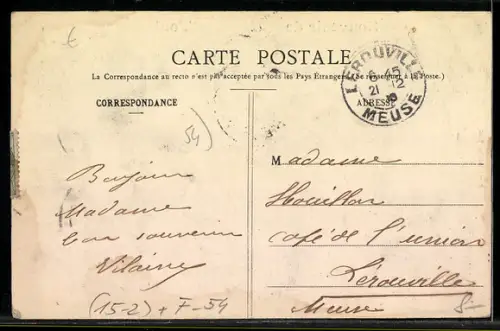 CARTE POSTALE
(La Correspondance au recto n'est pas acceptée par tous les Pays Étrangers. (Se renseigner à la Poste.)
CORRESPONDANCE
ADRESSE
LEROUVILLE
6 45
21 12
MEUSE
(54)
Bonjour
Madame
bon souvenir
Vilaine
Madame
Houillon
café de l'union
Lérouville
Meuse
(15-2) + F-54